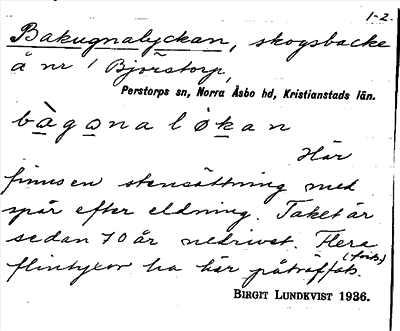 1-2.
Bakugnalyckan, skogsbacke
å nr 1 Bjorstorp,
Perstorps sn, Norra Åsbo hd, Kristianstads län.
bàgǝnalǿkan
Här
finns en stensättning med
spår efter eldning. Taket är
sedan 70 år nedrivet. Flera
flintyxor ha här påträffats.
BIRGIT LUNDKVIST 1936.